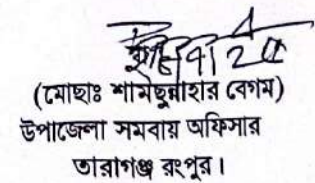 (মোছাঃ শামছুন্নাহার বেগম)
উপাজেলা সমবায় অফিসার
তারাগঞ্জ রংপুর।